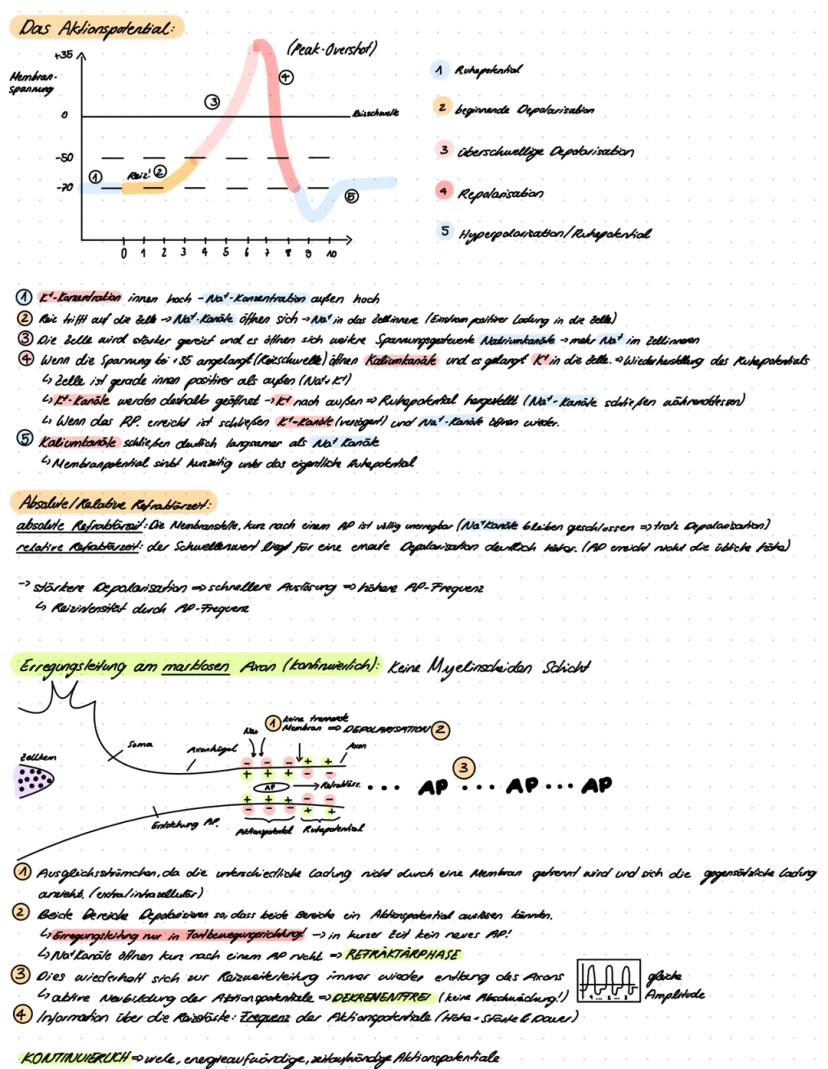 Das Aktionspotential:
+35
(Peak-Overshot)
Membran-
spannung
0
Reizschwelle
-50
-70
① Reiz! ② ③ ④ ⑤
0 1 2 3 4 5 6 7 8 9 10
1 Ruhepotential
2 beginnende Depolarisation
3 überschwellige Depolarisation
4 Repolarisation
5 Hyperpolarisation/Ruhepotential
① K⁺-Konzentration innen hoch - Na⁺-Konzentration außen hoch
② Reiz trifft auf die Zelle → Na⁺-Kanäle öffnen sich → Na⁺ in das Zellinnere (Einstrom positiver Ladung in die Zelle)
③ Die Zelle wird stärker gereizt und es öffnen sich weitere Spannungsgesteuerte Natriumkanäle → mehr Na⁺ im Zellinneren
④ Wenn die Spannung bei +35 angelangt (Reizschwelle) öffnen Kaliumkanäle und es gelangt K⁺ in die Zelle. ⇒ Wiederherstellung des Ruhepotentials
↳ Zelle ist gerade innen positiver als außen (Na⁺ K⁺)
↳ K⁺-Kanäle werden deshalb geöffnet → K⁺ nach außen ⇒ Ruhepotential hergestellt (Na⁺-Kanäle schließen währenddessen)
↳ Wenn das RP. erreicht ist schließen K⁺-Kanäle (verzögert) und Na⁺-Kanäle öffnen wieder.
⑤ Kaliumkanäle schließen deutlich langsamer als Na⁺ Kanäle
↳ Membranpotential sinkt kurzzeitig unter das eigentliche Ruhepotential
Absolute/Relative Refraktärzeit:
absolute Refraktärzeit: Die Membranstelle, kurz nach einem AP ist völlig unerregbar (Na⁺Kanäle bleiben geschlossen ⇒ trotz Depolarisation)
relative Refraktärzeit: der Schwellenwert liegt für eine erneute Depolarisation deutlich höher. (AP erreicht nicht die übliche Höhe)
→ stärkere Depolarisation ⇒ schnellere Auslösung ⇒ höhere AP-Frequenz
↳ Reizintensität durch AP-Frequenz
Erregungsleitung am marklosen Axon (kontinuierlich): Keine Myelinscheiden Schicht
Zellkern
Soma
Axonhügel
Na⁺
① keine trennende
Membran ⇒ DEPOLARISATION ②
Axon
- - - + +
+ + + - -
AP → Refraktärz.
... AP ③ ... AP ... AP
+ + + - -
- - - + +
Entstehung AP.
Aktionspotential Ruhepotential
① Ausgleichsströmchen, da die unterschiedliche Ladung nicht durch eine Membran getrennt wird und sich die gegensätzliche Ladung
anzieht. (extra/intrazellulär)
② Beide Bereiche Depolarisieren so, dass beide Bereiche ein Aktionspotential auslösen könnten.
↳ Erregungsleitung nur in Fortbewegungsrichtung! → in kurzer Zeit kein neues AP!
↳ Na⁺Kanäle öffnen kurz nach einem AP nicht ⇒ REFRAKTÄRPHASE
③ Dies wiederholt sich zur Reizweiterleitung immer wieder entlang des Axons
↳ aktive Neubildung der Aktionspotentiale ⇒ DEKREMENTFREI (keine Abschwächung!)
1 ... 2 ... 3
gleiche
Amplitude
④ Information über die Reizstärke: Frequenz der Aktionspotentiale (Höhe - Stärke & Dauer)
KONTINUIERLICH ⇒ viele, energieaufwändige, zeitaufwändige Aktionspotentiale